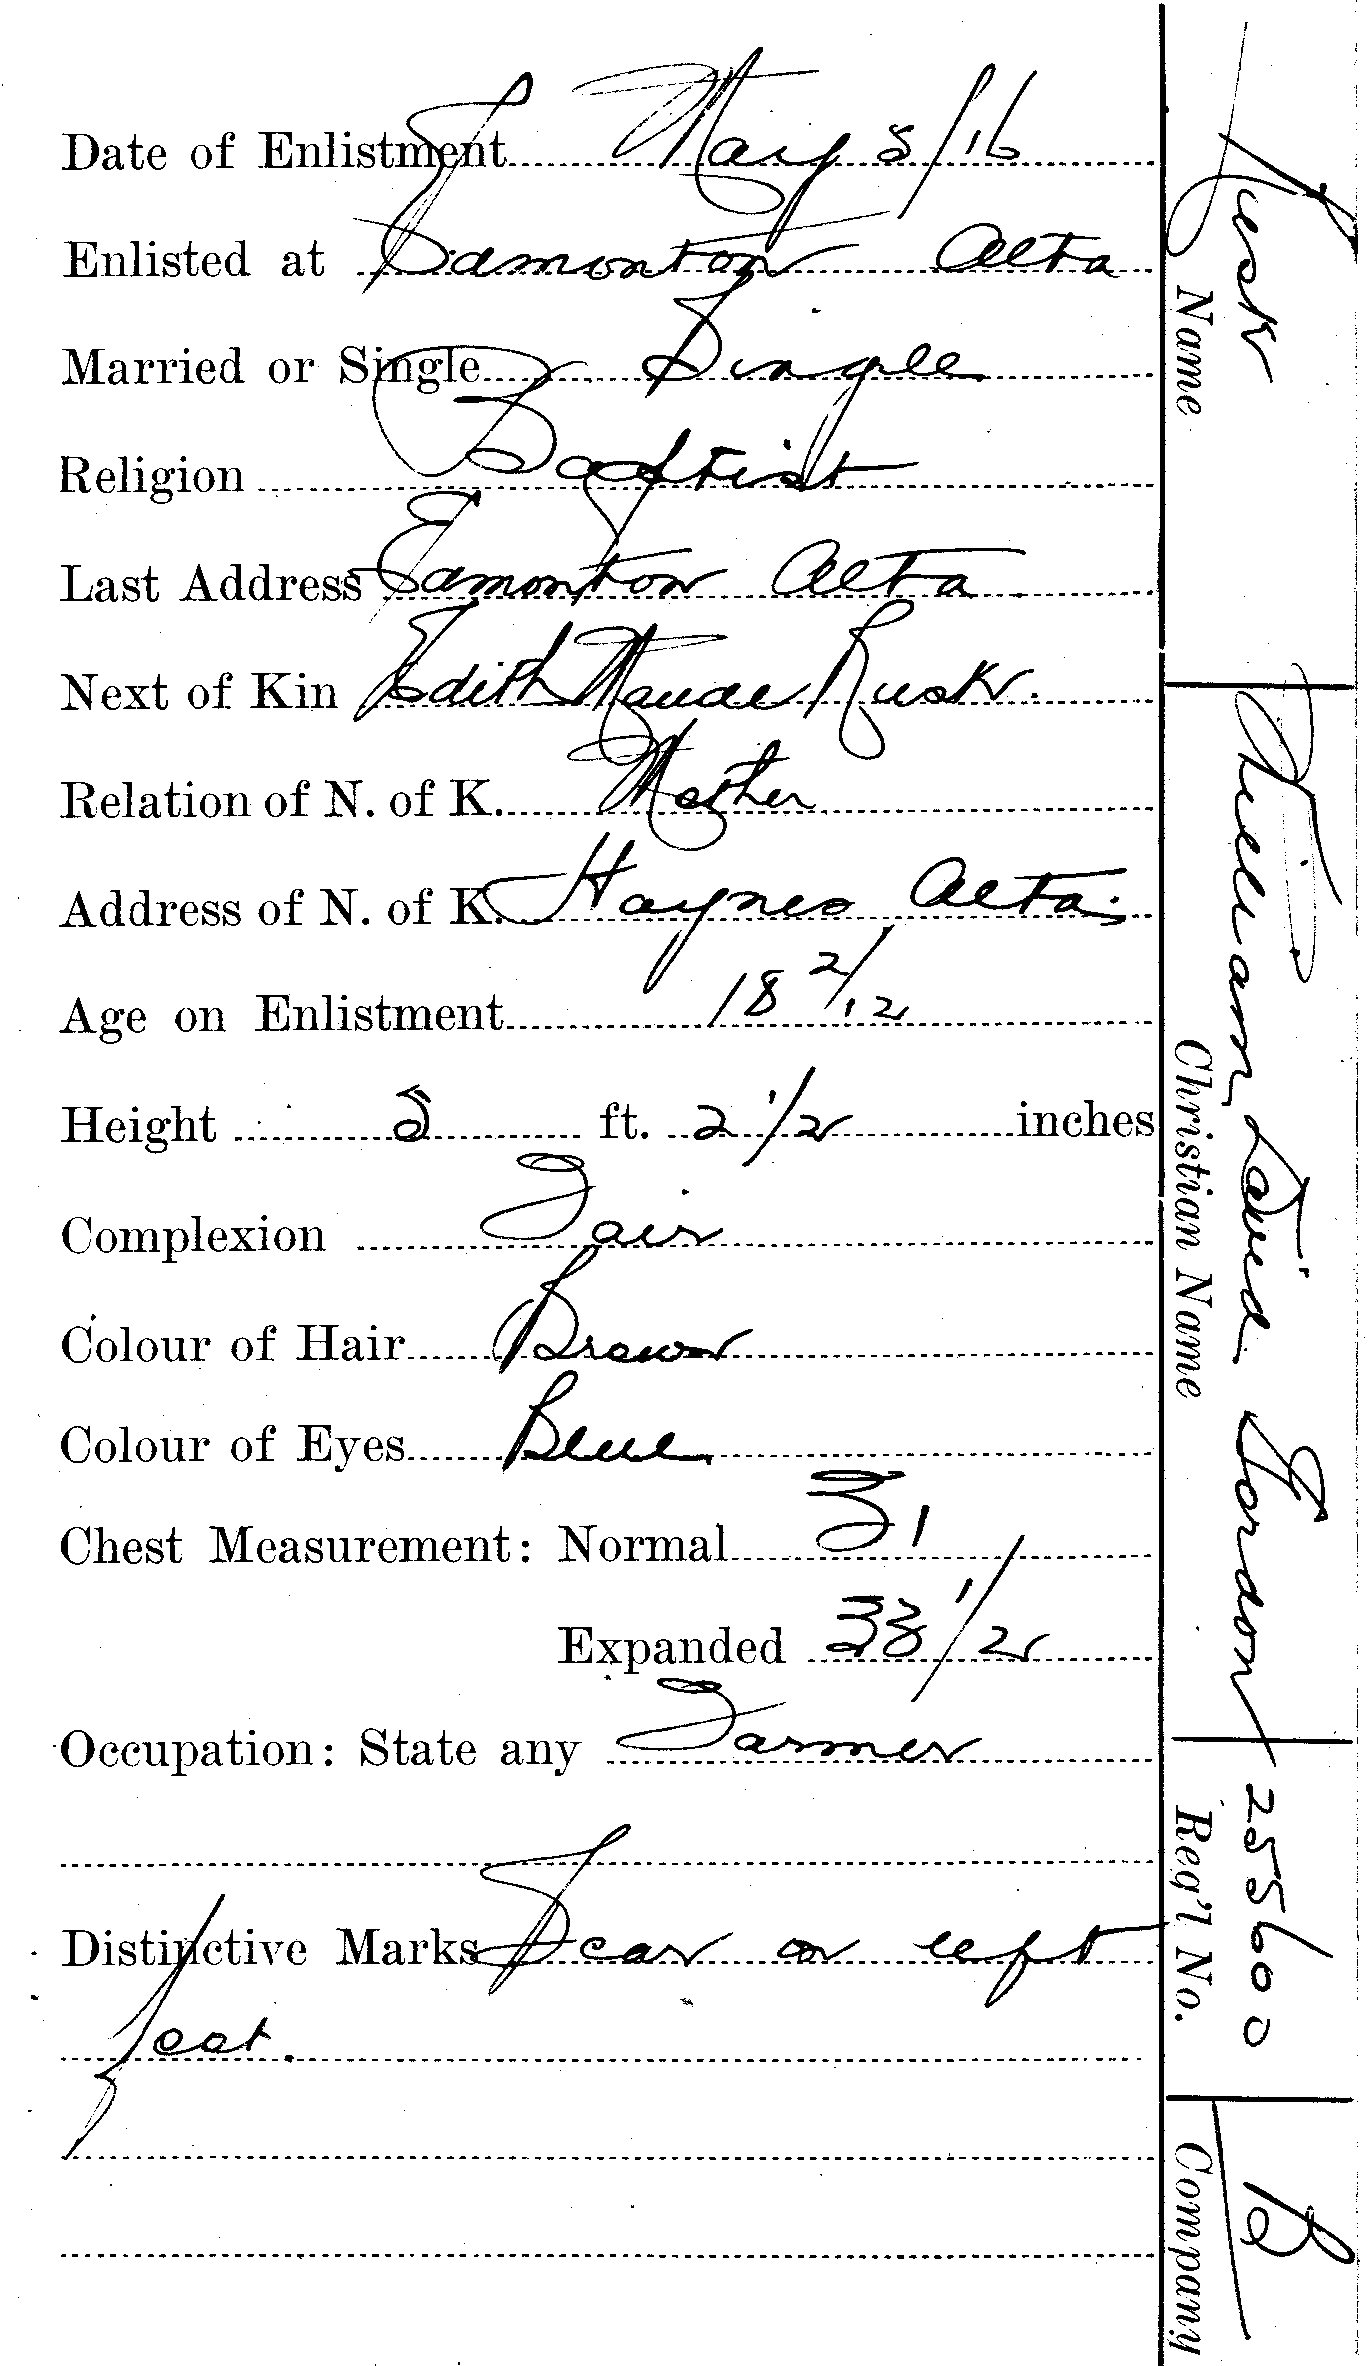 Date of Enlistment May 8/16
Enlisted at Edmonton Alta
Married or Single Single
Religion Baptist
Last Address Edmonton Alta
Next of Kin Edith Maude Rusk.
Relation of N. of K. Mother
Address of N. of K. Haynes Alta.
Age on Enlistment 18 2/12
Height 5 ft. 2 1/2 inches
Complexion Fair
Colour of Hair Brown
Colour of Eyes Blue
Chest Measurement: Normal 31
Expanded 33 1/2
Occupation: State any Farmer
Distinctive Marks Scar on left
foot.
Rusk William David Gordon 255600 B
Name Christian Name Reg'l No. Company